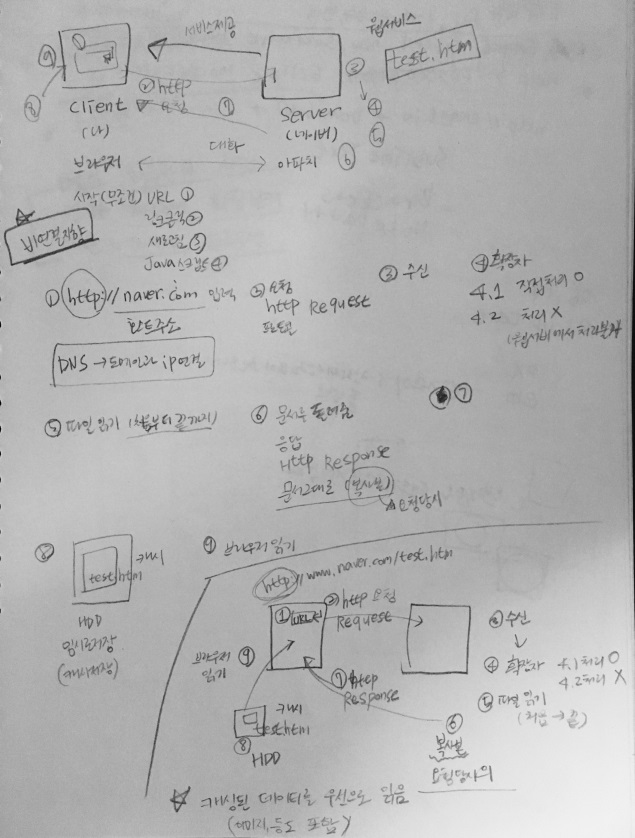 서비스제공
웹서비스
test.htm
⑨
①
② http
요청
③
⑧
⑦
④
client
Server
⑤
(나)
(네이버)
대화
브라우저
아파치 ⑥
시작(무조건) URL ①
링크클릭②
새로고침③
Java스크립트④
☆
비연결지향
① http://naver.com 입력
프로토콜
DNS → 도메인과 ip연결
② 요청
http Request
프로토콜
③ 수신
④ 확장자
4.1 직접처리 O
4.2 처리 X
⑤ 파일 읽기 (처음부터 끝까지)
⑥ 문서를 돌려줌
응답
Http Response
문서그대로 (복사본)
☆요청당시
⑦
⑧
캐시
test.htm
HDD
임시로저장
(캐시저장)
⑨ 브라우저 읽기
http://www.naver.com/test.htm
① URL
② http 요청
Request
③ 수신
④ 확장자
4.1 처리 O
4.2 처리 X
⑤ 파일 읽기
(처음→끝)
브라우저 ⑨
읽기
⑦ http
Response
캐시
test.htm
⑧
HDD
⑥
복사본
요청당시의
☆ 캐싱된 데이터를 우선으로 읽음
(이미지,등도 포함)